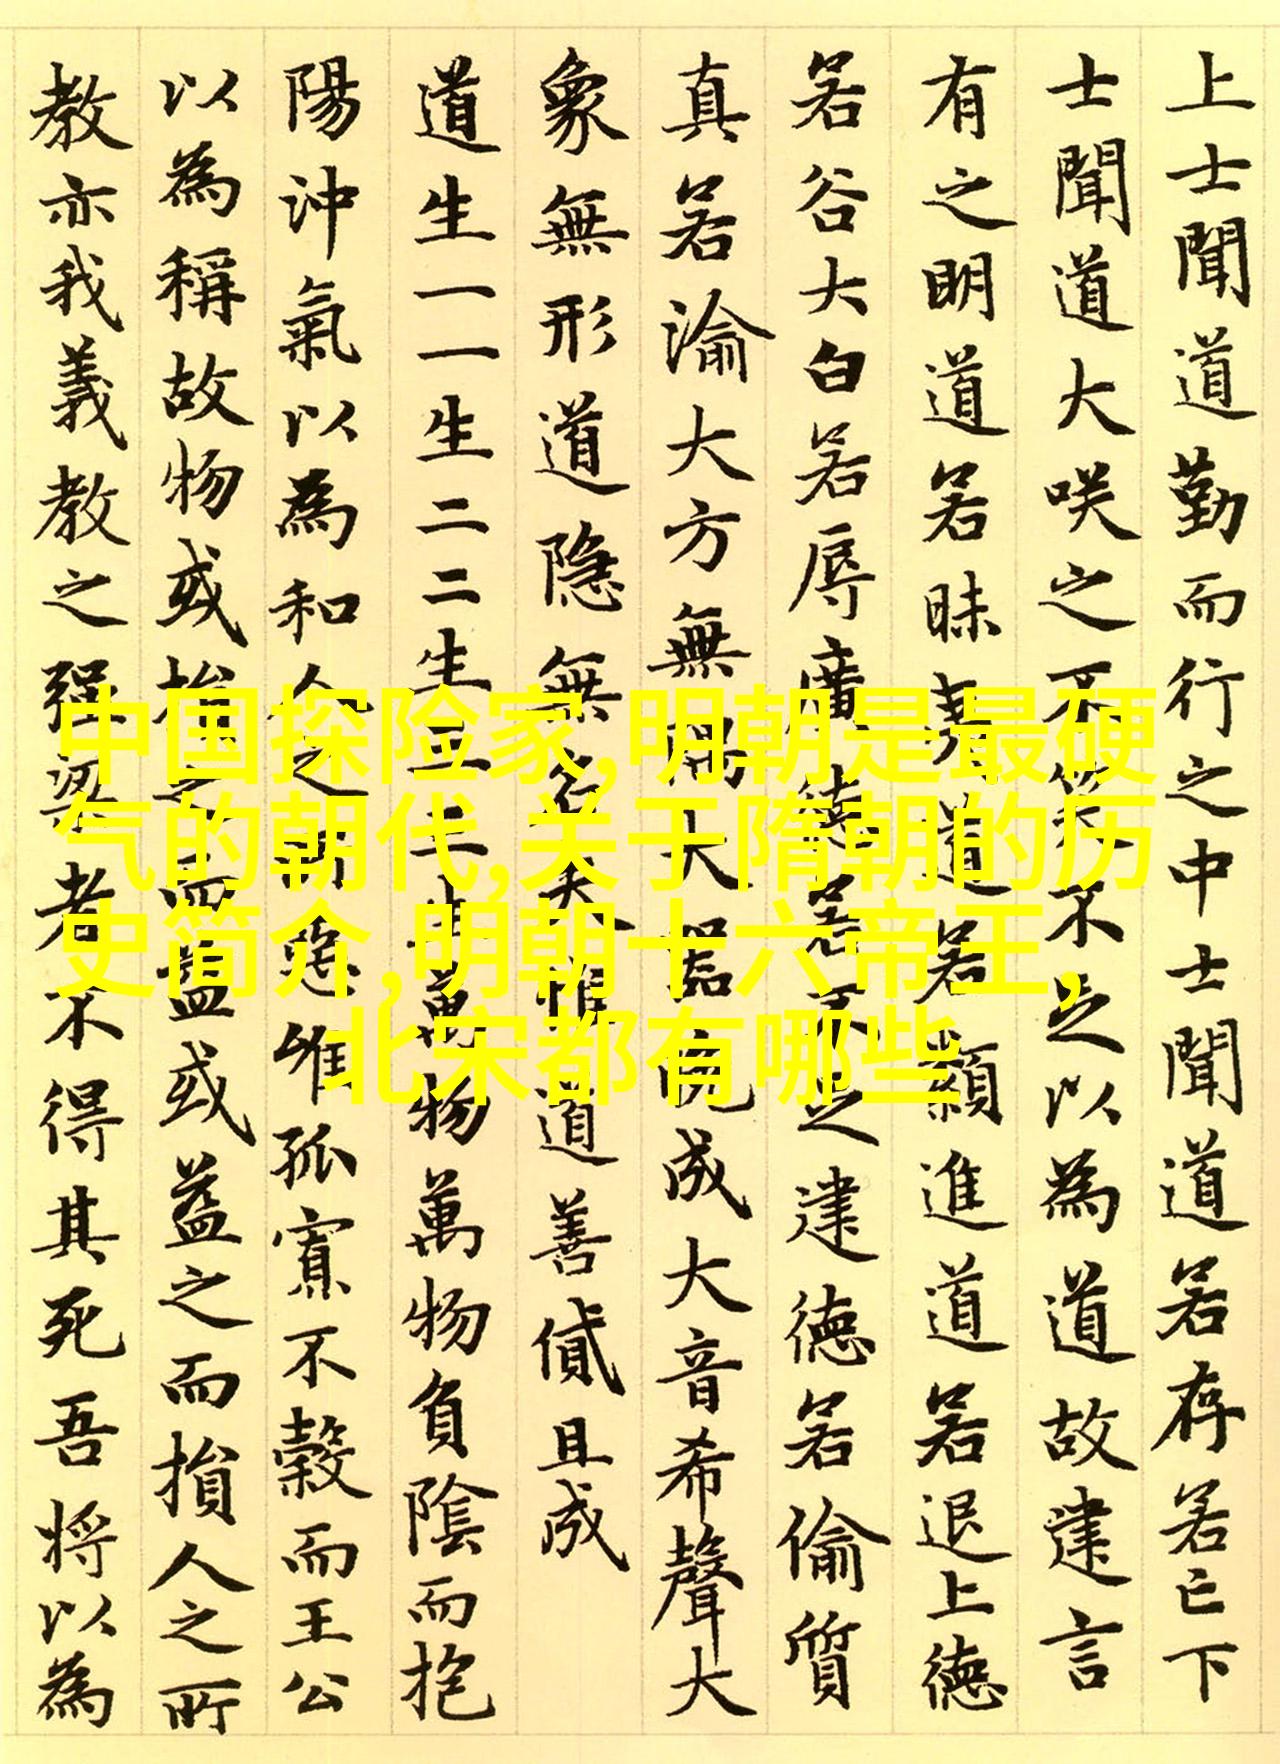 上士聞道勤而行之中士聞道若存若亡下
士聞道大咲之不笑不足以為道故建言
有之明道若昧夷道若類進道若退上德
若谷大白若辱廣德若不足建德若偷質
真若渝大方無隅大器晚成大音希聲大
象無形道隐無名夫惟道善貸且成
道生一一生二二生三三生萬物萬物負陰而抱
陽沖氣以為和人之所惡惟孤寡不穀而王公
以為稱故物或損之而益或益之而損人之所
教亦我義教之强梁者不得其死吾将以為
中国探险家,明朝是最硬
气的朝代,关于隋朝的历
史简介,明朝十六帝王,
北宋都有哪些